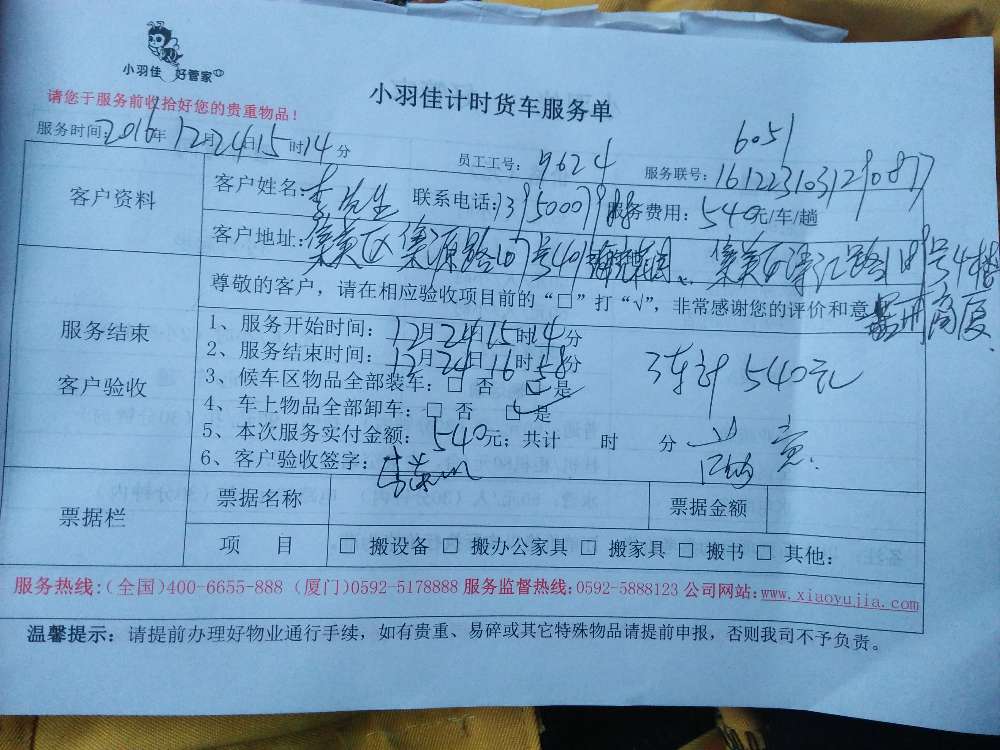 小羽佳 好管家
小羽佳计时货车服务单
请您于服务前收拾好您的贵重物品！
6051
服务时间：2016年12月24日15时14分 员工工号： 9624 服务联号：
客户资料 客户姓名： 李先生 联系电话： 服务费用：540元/车/趟
客户地址：集美区集源路107号401 集美区 路 号4楼
尊敬的客户，请在相应验收项目前的“□”打“√”，非常感谢您的评价和意
服务结束
客户验收
1、服务开始时间：12月24日15时14分
2、服务结束时间：12月24日16时58分
3、候车区物品全部装车：□ 否 □ 是
4、车上物品全部卸车：□ 否 □ 是
5、本次服务实付金额：540元；共计 时 分
6、客户验收签字：
3车计540元
票据栏 票据名称 票据金额
项 目 □ 搬设备 □ 搬办公家具 □ 搬家具 □ 搬书 □ 其他：
服务热线：（全国）400-6655-888（厦门）0592-5178888 服务监督热线：0592-5888123 公司网站：www.xiaoyujia.com
温馨提示：请提前办理好物业通行手续，如有贵重、易碎或其它特殊物品请提前申报，否则我司不予负责。